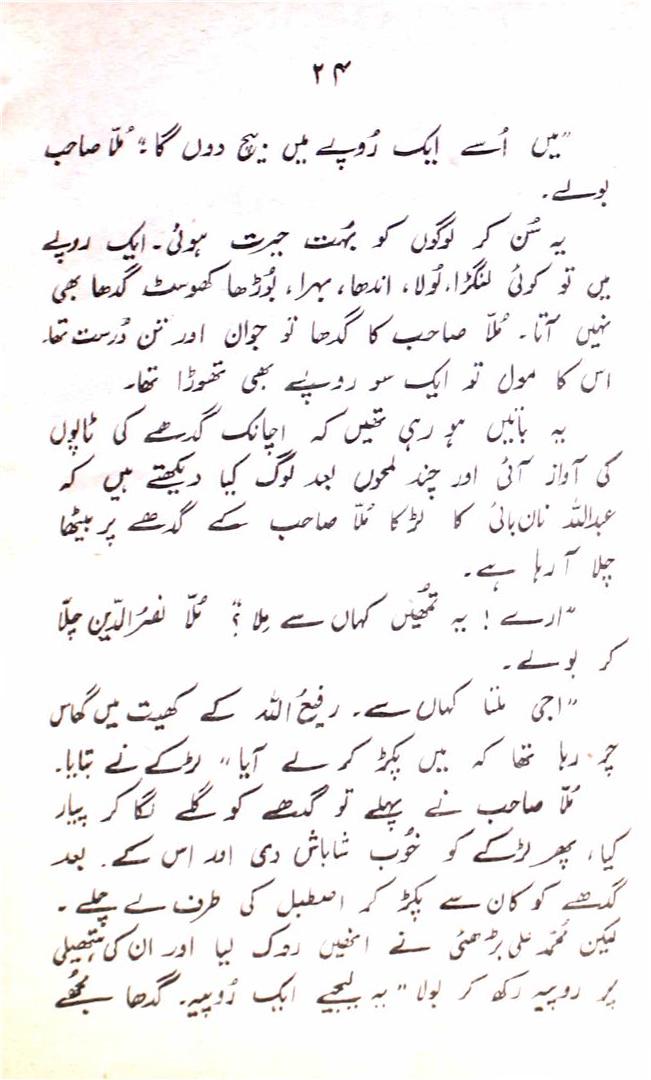 ۲۴
”میں اُسے ایک رُوپے میں بیچ دوں گا۔“ مُلّا صاحب
بولے۔
یہ سُن کر لوگوں کو بہُت حیرت ہوئی۔ ایک روپے
میں تو کوئی لنگڑا، لُولا، اندھا، بہرا، بُوڑھا کھوسٹ گدھا بھی
نہیں آتا۔ مُلّا صاحب کا گدھا تو جوان اور تن دُرست تھا۔
اس کا مول تو ایک سو روپے بھی تھوڑا تھا۔
یہ باتیں ہو رہی تھیں کہ اچانک گدھے کی ٹاپوں
کی آواز آئی اور چند لمحوں بعد لوگ کیا دیکھتے ہیں کہ
عبداللہ نان بائی کا لڑکا مُلّا صاحب کے گدھے پر بیٹھا
چلا آ رہا ہے۔
”ارے! یہ تمھُیں کہاں سے مِلا؟“ مُلّا نصرُ الدّین چِلّا
کر بولے۔
”اجی ملتا کہاں سے۔ رفیعُ اللہ کے کھیت میں گھاس
چر رہا تھا کہ میں پکڑ کر لے آیا“ لڑکے نے بتایا۔
مُلّا صاحب نے پہلے تو گدھے کو گلے لگا کر پیار
کیا، پھر لڑکے کو خُوب شاباش دی اور اس کے بعد
گدھے کو کان سے پکڑ کر اصطبل کی طرف لے چلے۔
لیکن مُحمّد علی بڑھئی نے انھیں روک لیا اور ان کی ہتھیلی
پر روپیہ رکھ کر بولا ”یہ لیجیے ایک رُوپیہ۔ گدھا مجھُے